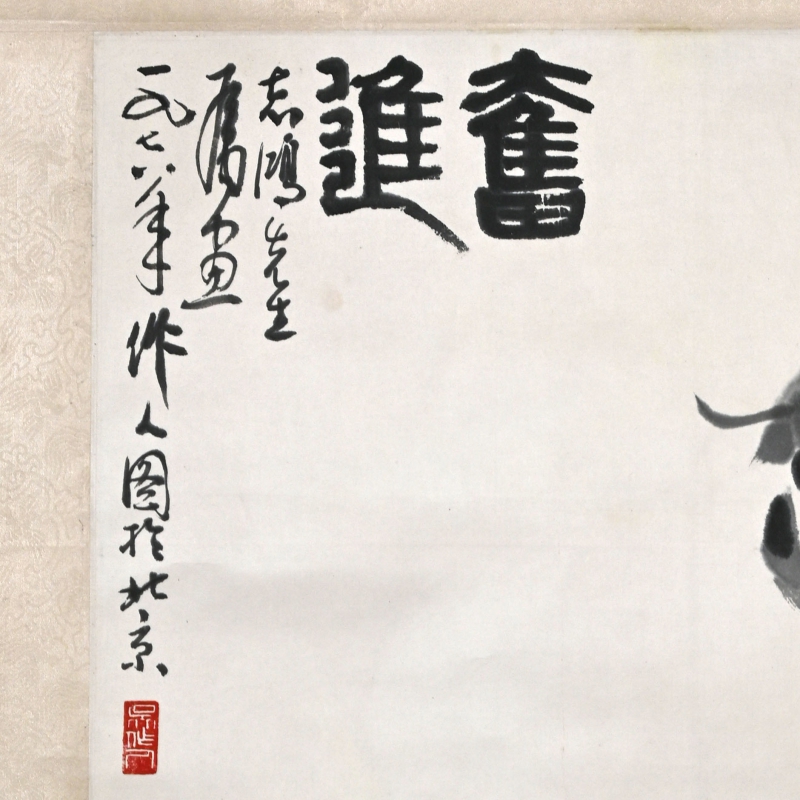 奮進
志鴻先生
屬畫
一九七八年作人图於北京
吴作人